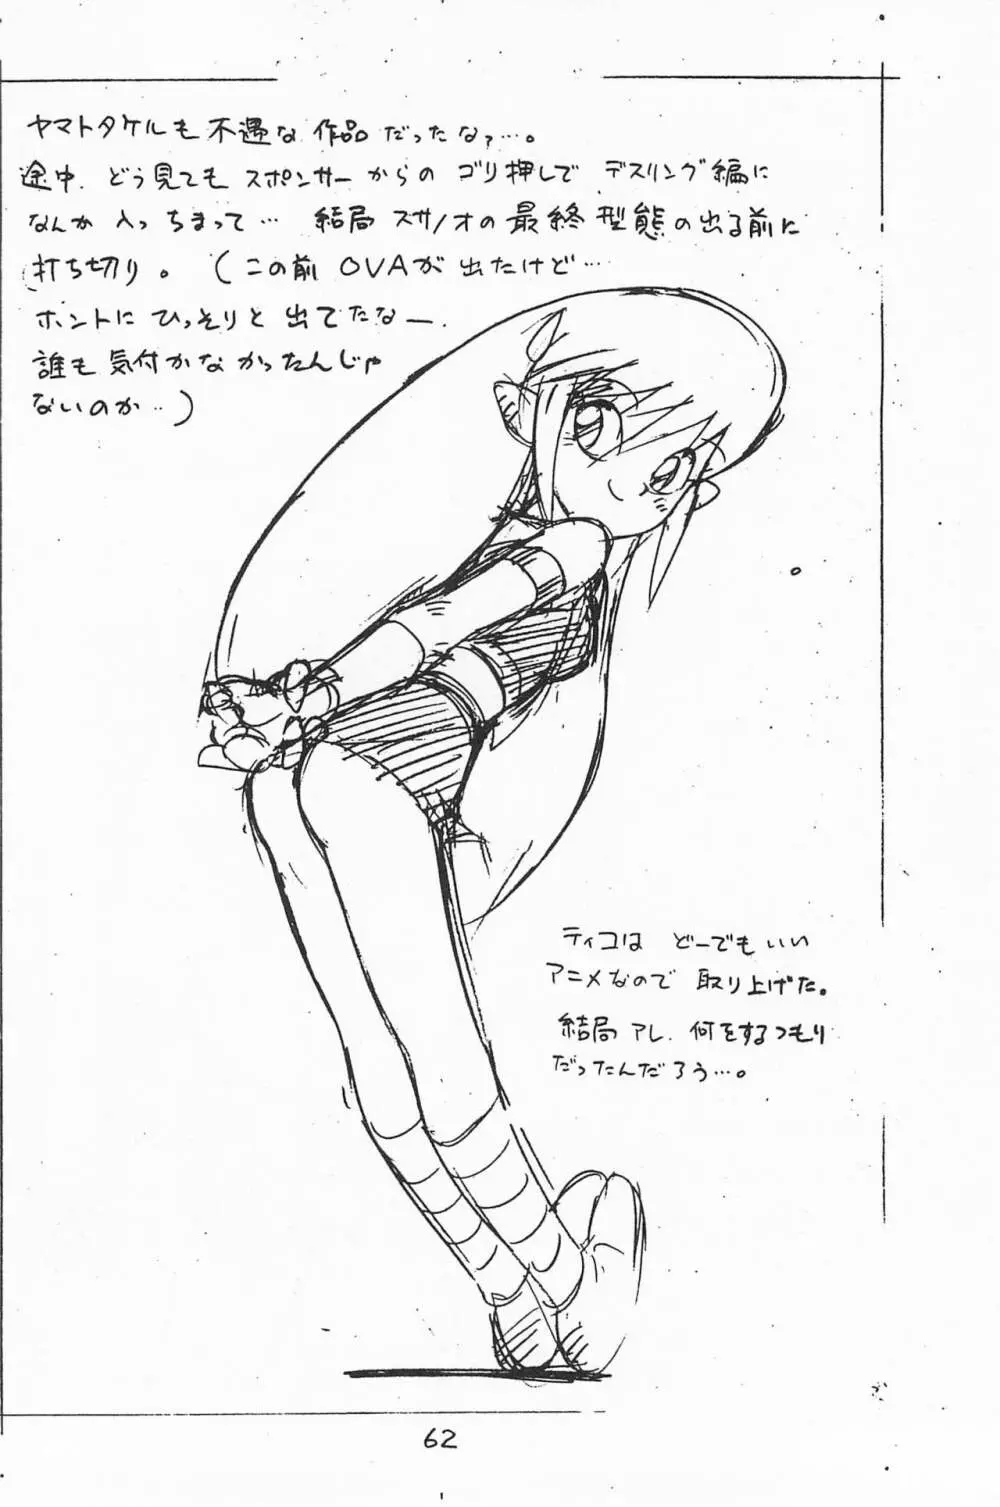 ヤマトタケルも不遇な作品だったなァ…。
途中、どう見てもスポンサーからのゴリ押しでデスリング編に
なんか入っちまって… 結局スサノオの最終型態の出る前に
打ち切り。（この前OVAが出たけど…
ホントにひっそりと出てたなー、
誰も気付かなかったんじゃ
ないのか…）
ティコはどーでもいい
アニメなので取り上げた。
結局アレ、何をするつもり
だったんだろう…。
62